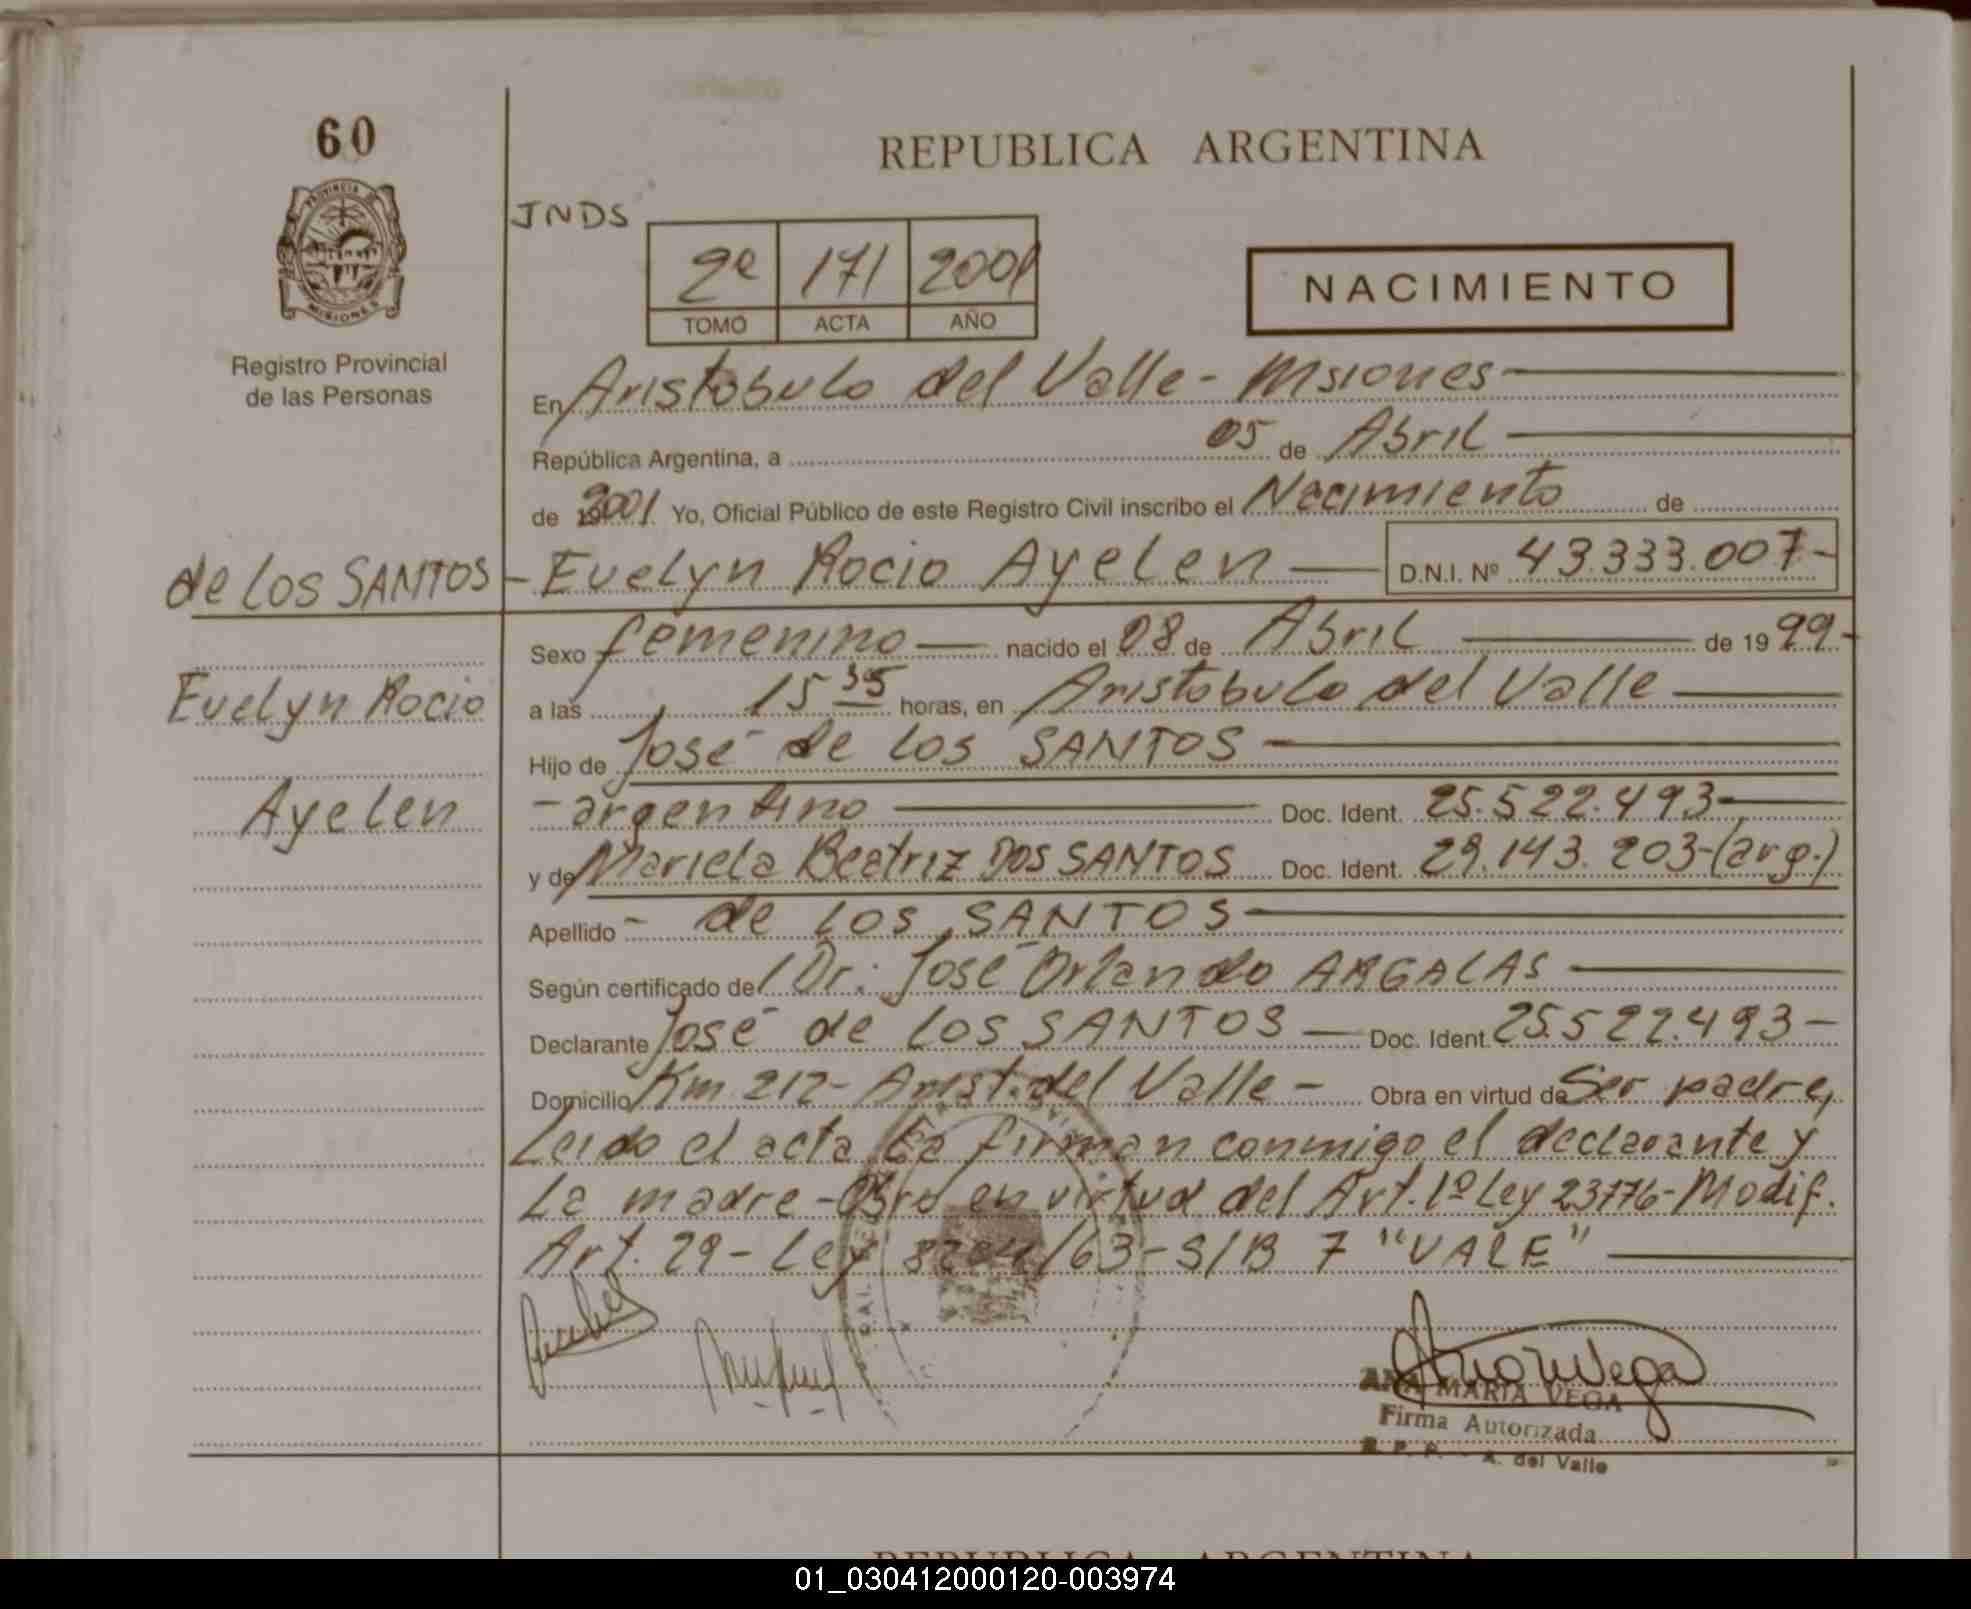 60
PROVINCIA DE
MISIONES
Registro Provincial
de las Personas
REPUBLICA ARGENTINA
JNDS
2º 171 2001
TOMO ACTA AÑO
NACIMIENTO
En Aristobulo del Valle - Msiones
República Argentina, a 05 de Abril
de 2001 Yo, Oficial Público de este Registro Civil inscribo el Nacimiento de
de los SANTOS - Evelyn Rocio Ayelen D.N.I. Nº 43.333.007-
Sexo femenino nacido el 08 de Abril de 1999-
Evelyn Rocio a las 15 35 horas, en Aristobulo del Valle
Hijo de José de los SANTOS
Ayelen - argentino Doc. Ident. 25.522.493-
y de Mariela Beatriz DOS SANTOS Doc. Ident. 29.143.203-(arg.)
Apellido - de LOS SANTOS
Según certificado de Dr. José Orlando ARGALAS
Declarante José de LOS SANTOS Doc. Ident. 25.522.493-
Domicilio Km 212- Arist. del Valle - Obra en virtud de Ser padre,
Leido el acta la firman conmigo el declarante y
La madre - Obro en virtud del Art. 1º Ley 23776-Modif.
Art. 29 - Ley 8204/63-S/B 7 "VALE"
ANA MARIA VEGA
Firma Autorizada
R. P. P. - A. del Valle
REPUBLICA ARGENTINA
01_030412000120-003974